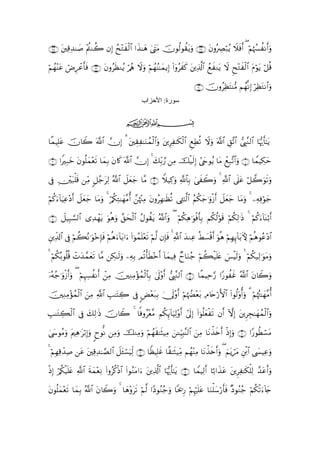 وَأَنفُسُهُمْ ۖ أَفَلَا يُبْصِرُونَ ﴿٢٧﴾ وَيَقُولُونَ مَتَىٰ هَٰذَا ٱلْفَتْحُ إِن كُنتُمْ صَٰدِقِينَ ﴿٢٨﴾
قُلْ يَوْمَ ٱلْفَتْحِ لَا يَنفَعُ ٱلَّذِينَ كَفَرُوٓا۟ إِيمَٰنُهُمْ وَلَا هُمْ يُنظَرُونَ ﴿٢٩﴾ فَأَعْرِضْ عَنْهُمْ
وَٱنتَظِرْ إِنَّهُم مُّنتَظِرُونَ ﴿٣٠﴾
سورة: الأحزاب
بِسْمِ ٱللَّهِ ٱلرَّحْمَٰنِ ٱلرَّحِيمِ
يَٰٓأَيُّهَا ٱلنَّبِىُّ ٱتَّقِ ٱللَّهَ وَلَا تُطِعِ ٱلْكَٰفِرِينَ وَٱلْمُنَٰفِقِينَ ۗ إِنَّ ٱللَّهَ كَانَ عَلِيمًا
حَكِيمًا ﴿١﴾ وَٱتَّبِعْ مَا يُوحَىٰٓ إِلَيْكَ مِن رَّبِّكَ ۚ إِنَّ ٱللَّهَ كَانَ بِمَا تَعْمَلُونَ خَبِيرًا ﴿٢﴾
وَتَوَكَّلْ عَلَى ٱللَّهِ ۚ وَكَفَىٰ بِٱللَّهِ وَكِيلًا ﴿٣﴾ مَّا جَعَلَ ٱللَّهُ لِرَجُلٍ مِّن قَلْبَيْنِ فِى
جَوْفِهِۦ ۚ وَمَا جَعَلَ أَزْوَٰجَكُمُ ٱلَّٰٓـِٔى تُظَٰهِرُونَ مِنْهُنَّ أُمَّهَٰتِكُمْ ۚ وَمَا جَعَلَ أَدْعِيَآءَكُمْ
أَبْنَآءَكُمْ ۚ ذَٰلِكُمْ قَوْلُكُم بِأَفْوَٰهِكُمْ ۖ وَٱللَّهُ يَقُولُ ٱلْحَقَّ وَهُوَ يَهْدِى ٱلسَّبِيلَ ﴿٤﴾
ٱدْعُوهُمْ لِءَابَآئِهِمْ هُوَ أَقْسَطُ عِندَ ٱللَّهِ ۚ فَإِن لَّمْ تَعْلَمُوٓا۟ ءَابَآءَهُمْ فَإِخْوَٰنُكُمْ فِى ٱلدِّينِ
وَمَوَٰلِيكُمْ ۚ وَلَيْسَ عَلَيْكُمْ جُنَاحٌ فِيمَآ أَخْطَأْتُم بِهِۦ وَلَٰكِن مَّا تَعَمَّدَتْ قُلُوبُكُمْ ۚ
وَكَانَ ٱللَّهُ غَفُورًا رَّحِيمًا ﴿٥﴾ ٱلنَّبِىُّ أَوْلَىٰ بِٱلْمُؤْمِنِينَ مِنْ أَنفُسِهِمْ ۖ وَأَزْوَٰجُهُۥٓ
أُمَّهَٰتُهُمْ ۗ وَأُو۟لُوا۟ ٱلْأَرْحَامِ بَعْضُهُمْ أَوْلَىٰ بِبَعْضٍ فِى كِتَٰبِ ٱللَّهِ مِنَ ٱلْمُؤْمِنِينَ
وَٱلْمُهَٰجِرِينَ إِلَّآ أَن تَفْعَلُوٓا۟ إِلَىٰٓ أَوْلِيَآئِكُم مَّعْرُوفًا ۚ كَانَ ذَٰلِكَ فِى ٱلْكِتَٰبِ
مَسْطُورًا ﴿٦﴾ وَإِذْ أَخَذْنَا مِنَ ٱلنَّبِيِّۦنَ مِيثَٰقَهُمْ وَمِنكَ وَمِن نُّوحٍ وَإِبْرَٰهِيمَ وَمُوسَىٰ
وَعِيسَى ٱبْنِ مَرْيَمَ ۖ وَأَخَذْنَا مِنْهُم مِّيثَٰقًا غَلِيظًا ﴿٧﴾ لِّيَسْـَٔلَ ٱلصَّٰدِقِينَ عَن صِدْقِهِمْ ۚ
وَأَعَدَّ لِلْكَٰفِرِينَ عَذَابًا أَلِيمًا ﴿٨﴾ يَٰٓأَيُّهَا ٱلَّذِينَ ءَامَنُوا۟ ٱذْكُرُوا۟ نِعْمَةَ ٱللَّهِ عَلَيْكُمْ إِذْ
جَآءَتْكُمْ جُنُودٌ فَأَرْسَلْنَا عَلَيْهِمْ رِيحًا وَجُنُودًا لَّمْ تَرَوْهَا ۚ وَكَانَ ٱللَّهُ بِمَا تَعْمَلُونَ